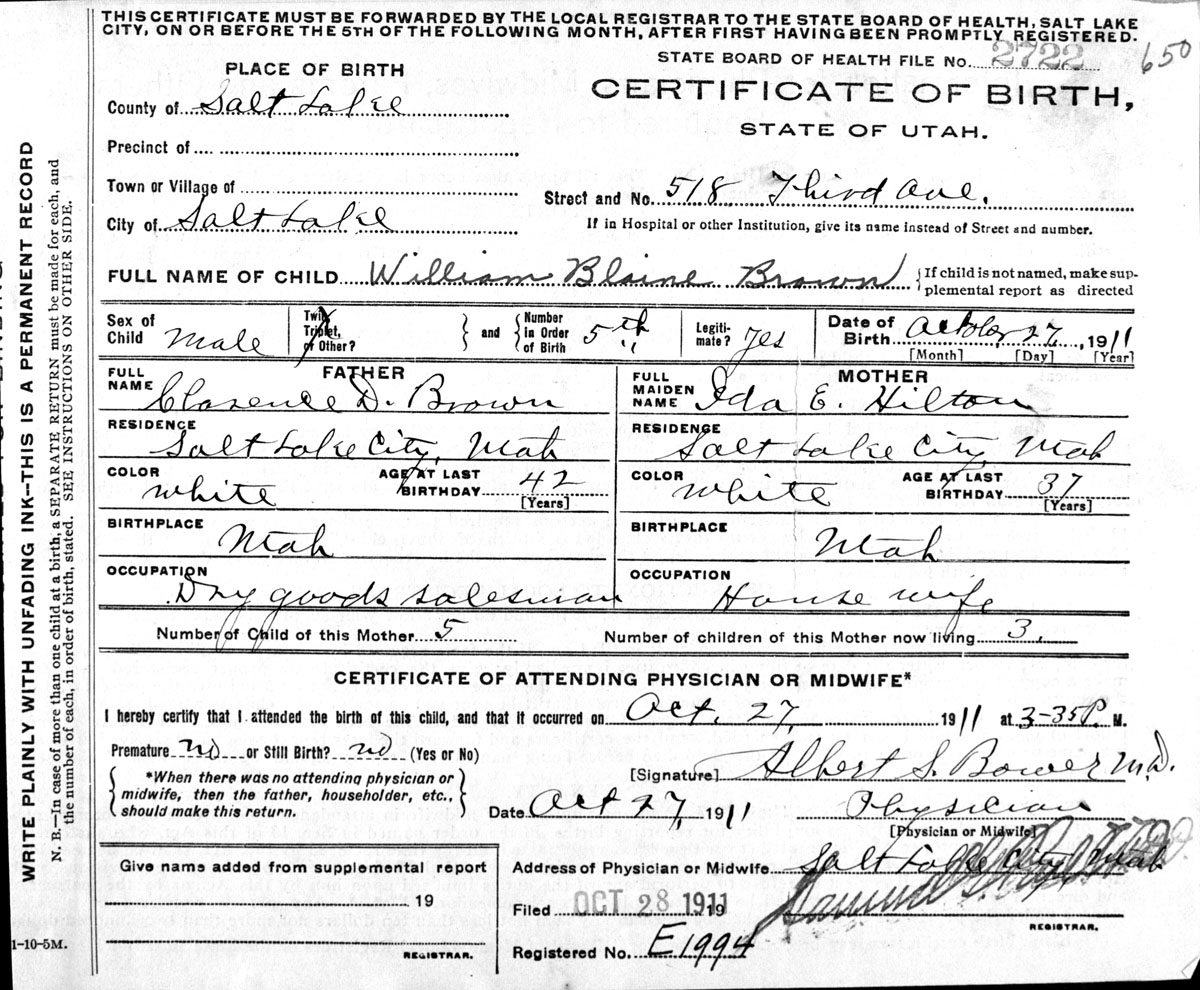 THIS CERTIFICATE MUST BE FORWARDED BY THE LOCAL REGISTRAR TO THE STATE BOARD OF HEALTH, SALT LAKE
CITY, ON OR BEFORE THE 5TH OF THE FOLLOWING MONTH, AFTER FIRST HAVING BEEN PROMPTLY REGISTERED.
STATE BOARD OF HEALTH FILE No. 2722
650
PLACE OF BIRTH
CERTIFICATE OF BIRTH,
STATE OF UTAH.
County of Salt Lake
Precinct of
Town or Village of
Street and No. 518 Third Ave.
City of Salt Lake
If in Hospital or other Institution, give its name instead of Street and number.
FULL NAME OF CHILD William Blaine Brown
{If child is not named, make sup-
plemental report as directed
Sex of Child Male
Twin, Triplet, or Other?
} and {
Number in Order of Birth 5th
Legiti-mate? Yes
Date of Birth October 27, 1911
[Month] [Day] [Year]
FATHER
FULL NAME Clarence D. Brown
MOTHER
FULL MAIDEN NAME Ida E. Hilton
RESIDENCE Salt Lake City, Utah
RESIDENCE Salt Lake City, Utah
COLOR white
AGE AT LAST BIRTHDAY 42 [Years]
COLOR white
AGE AT LAST BIRTHDAY 37 [Years]
BIRTHPLACE Utah
BIRTHPLACE Utah
OCCUPATION Dry goods salesman
OCCUPATION House wife
Number of Child of this Mother 5
Number of children of this Mother now living 3.
CERTIFICATE OF ATTENDING PHYSICIAN OR MIDWIFE*
I hereby certify that I attended the birth of this child, and that it occurred on Oct. 27, 1911 at 3-35 P. M.
Premature no or Still Birth? no (Yes or No)
*When there was no attending physician or
midwife, then the father, householder, etc.,
should make this return.
[Signature] Albert S. Bower M.D.
Date Oct 27, 1911
Physician
[Physician or Midwife]
Give name added from supplemental report
19
REGISTRAR.
Address of Physician or Midwife Salt Lake City Utah
Filed OCT 28 1911 19
REGISTRAR.
Registered No. E1994
WRITE PLAINLY WITH UNFADING INK--THIS IS A PERMANENT RECORD
N. B.—In case of more than one child at a birth, a SEPARATE RETURN must be made for each, and
the number of each, in order of birth, stated. SEE INSTRUCTIONS ON OTHER SIDE.
1-10-5M.